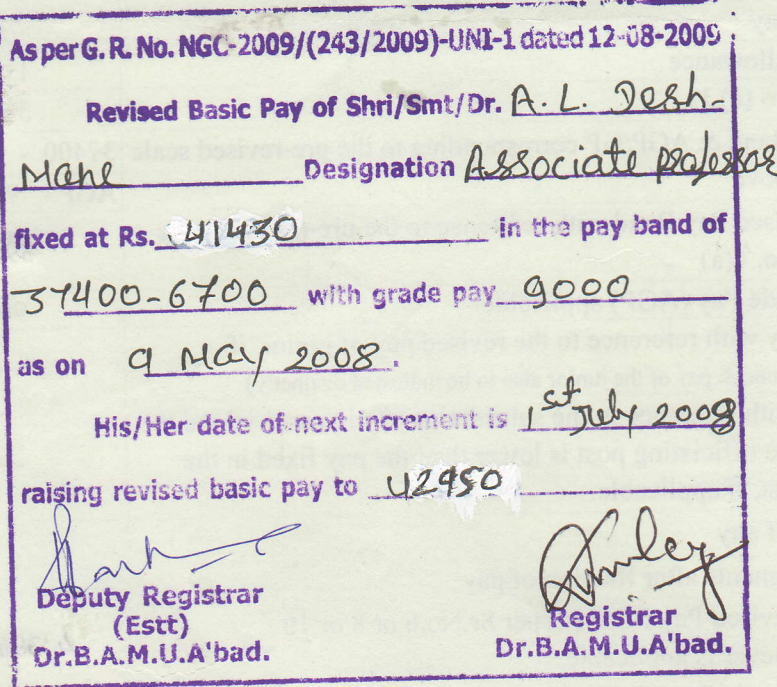 As per G. R. No. NGC-2009/(243/2009)-UNI-1 dated 12-08-2009
Revised Basic Pay of Shri/Smt/Dr. A. L. Desh-
Mane Designation Associate professor
fixed at Rs. 41430 in the pay band of
37400-6700 with grade pay 9000
as on 9 May 2008
His/Her date of next increment is 1st July 2008
raising revised basic pay to 42950
Deputy Registrar
(Estt)
Dr.B.A.M.U.A'bad.
Registrar
Dr.B.A.M.U.A'bad.